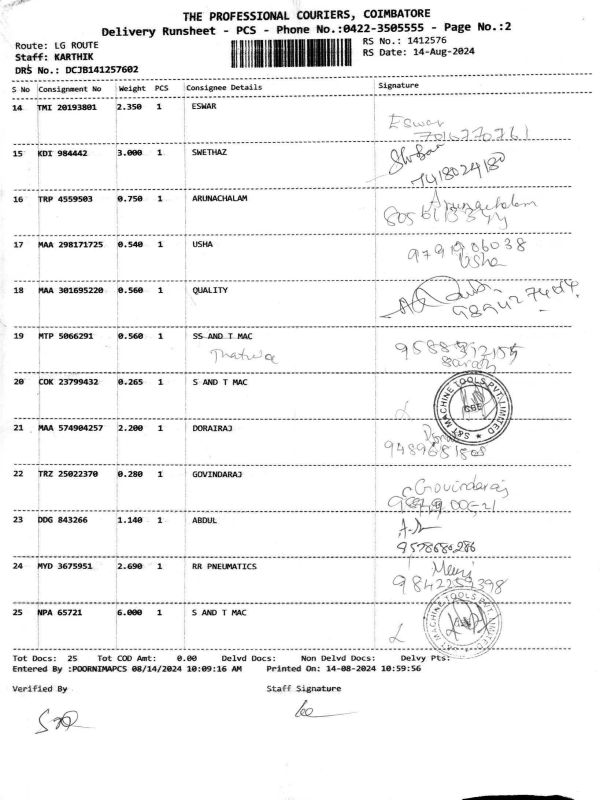 THE PROFESSIONAL COURIERS, COIMBATORE
Delivery Runsheet - PCS - Phone No.:0422-3505555 - Page No.:2
Route: LG ROUTE RS No.: 1412576
Staff: KARTHIK RS Date: 14-Aug-2024
DRS No.: DCJB141257602
S No Consignment No Weight PCS Consignee Details Signature
14 TMI 20193801 2.350 1 ESWAR
Eswar
7016770761
15 KDI 984442 3.000 1 SWETHAZ
7418024180
16 TRP 4559503 0.750 1 ARUNACHALAM
Arunachalam
17 MAA 298171725 0.540 1 USHA
9791906038
Usha
18 MAA 301695220 0.560 1 QUALITY
19 MTP 5066291 0.560 1 SS AND T MAC
20 COK 23799432 0.265 1 S AND T MAC
S&T MACHINE TOOLS PVT. LIMITED
CBE
21 MAA 574904257 2.200 1 DORAIRAJ
22 TRZ 25022370 0.280 1 GOVINDARAJ
Govindaraj
23 DDG 843266 1.140 1 ABDUL
9578680286
24 MYD 3675951 2.690 1 RR PNEUMATICS
9842259398
25 NPA 65721 6.000 1 S AND T MAC
S&T MACHINE TOOLS PVT. LIMITED
Tot Docs: 25 Tot COD Amt: 0.00 Delvd Docs: Non Delvd Docs: Delvy Pts:
Entered By :POORNIMAPCS 08/14/2024 10:09:16 AM Printed On: 14-08-2024 10:59:56
Verified By Staff Signature